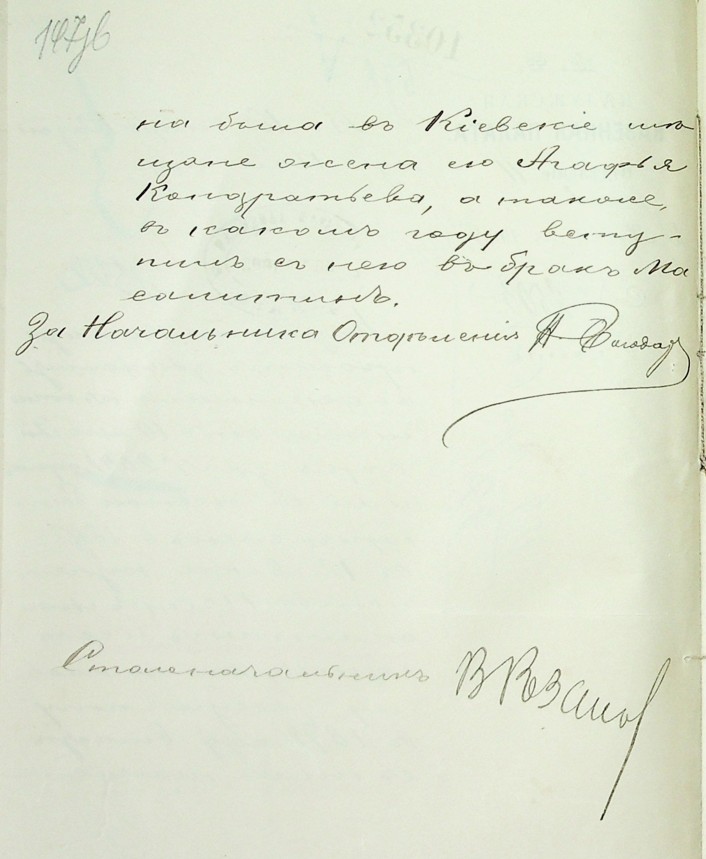 на была въ Кіевскіе мѣ
щане жена его Агафья
Кондратьева, а также,
въ какомъ году всту-
пилъ съ нею въ бракъ Ма
салитинъ.
За Начальника Отдѣленія
Столоначальникъ